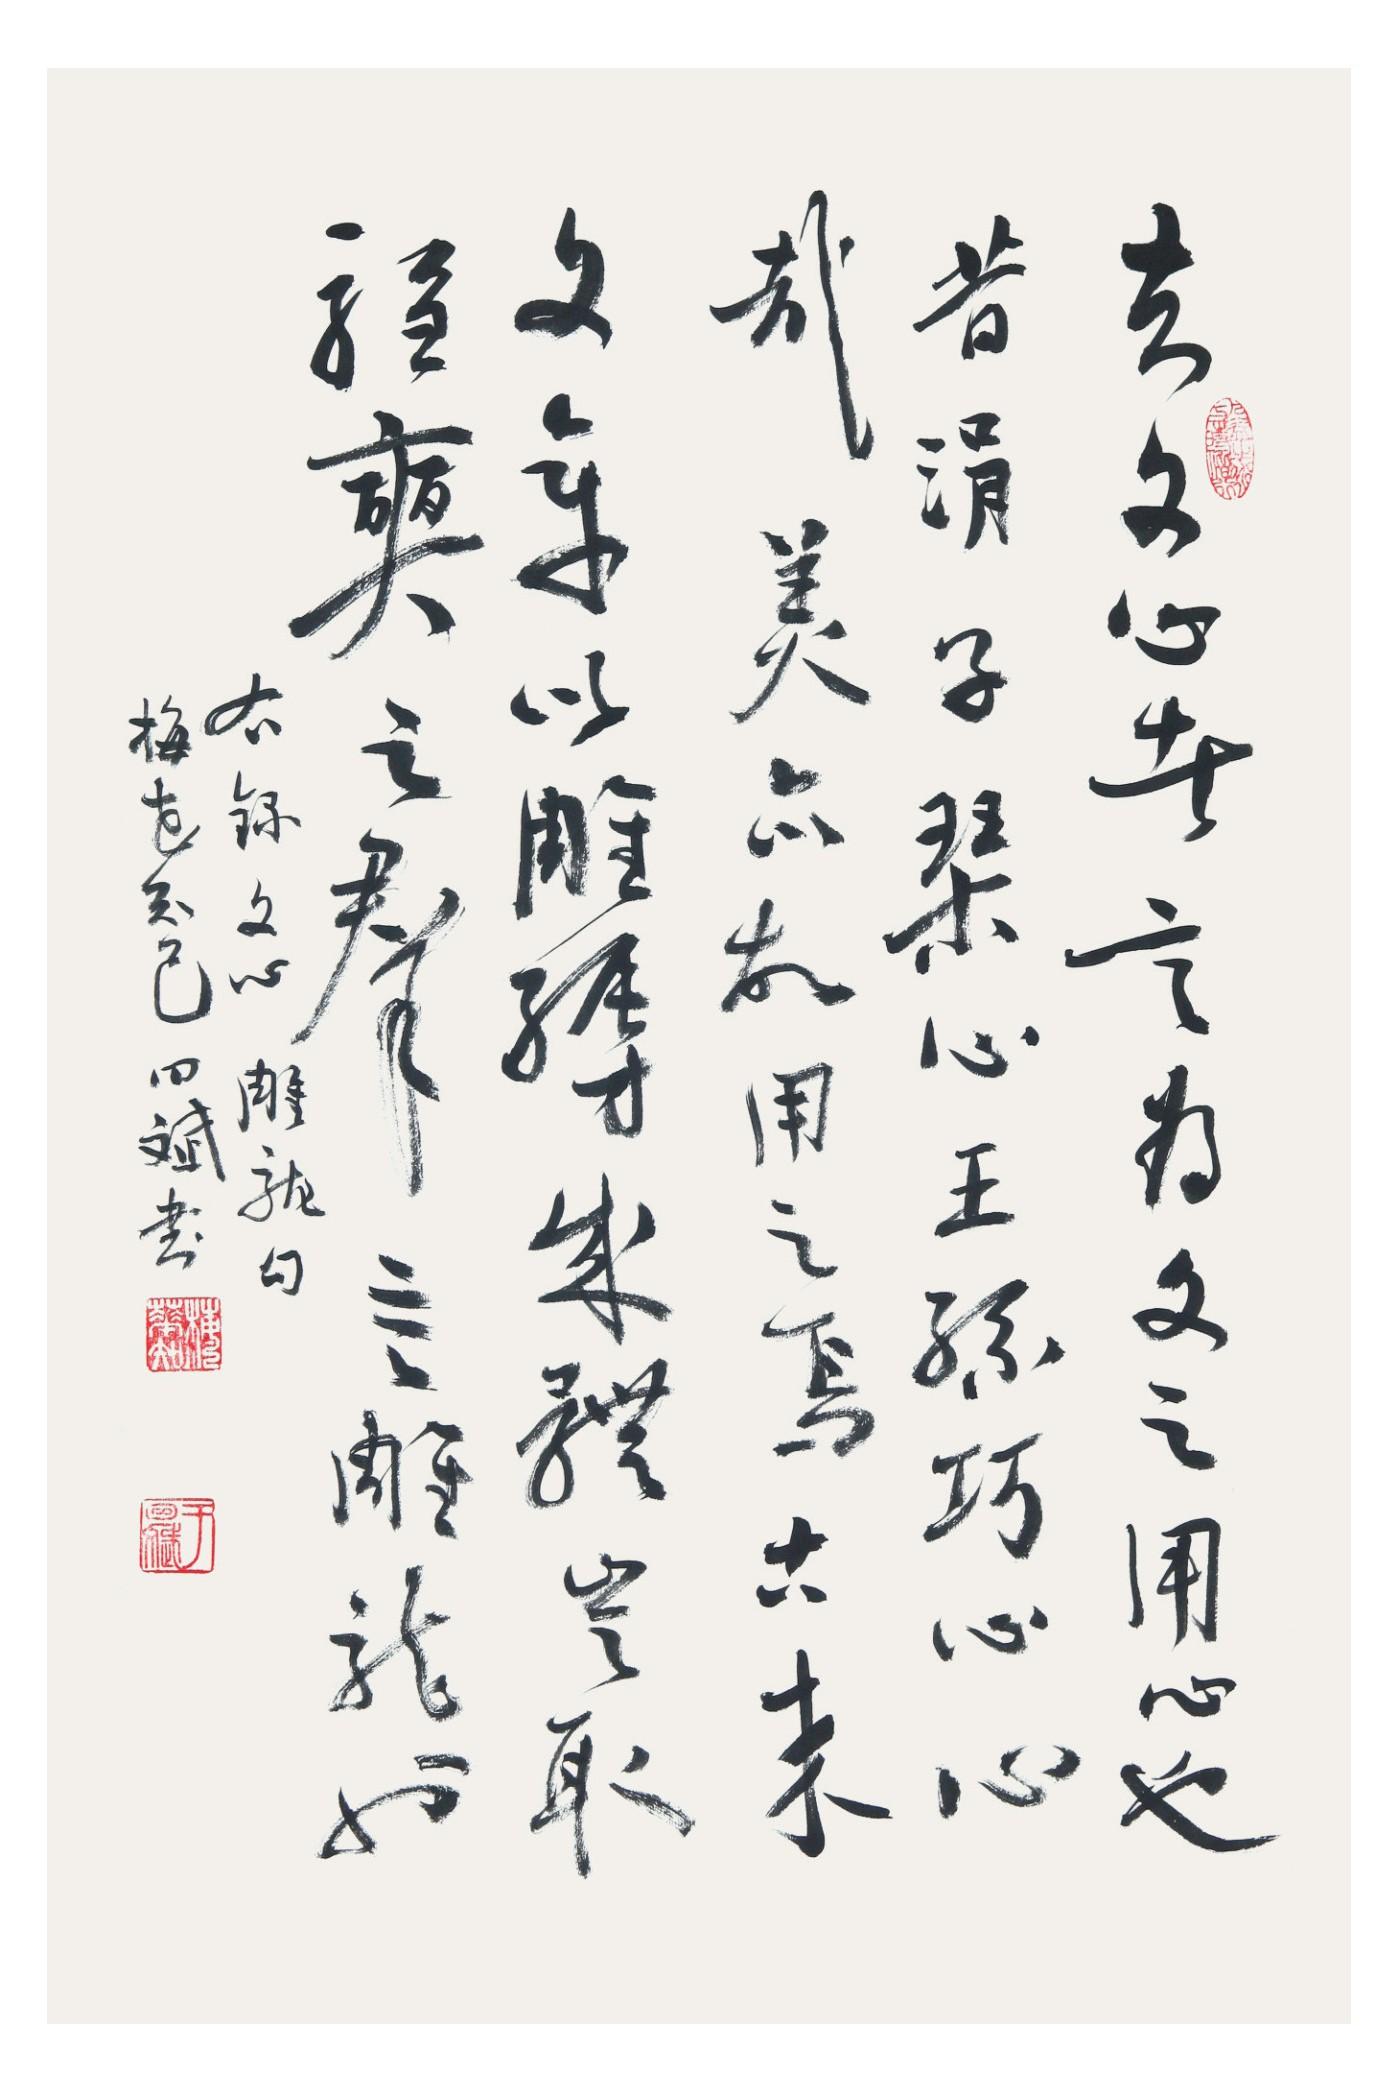 夫文心者言為文之用心也
昔涓子琹心王孫巧心心
哉美矣故用之焉古来
文章以雕縟成體豈取
騶奭之羣言雕龍也
右録文心雕龍句
梅 癸巳四斌书